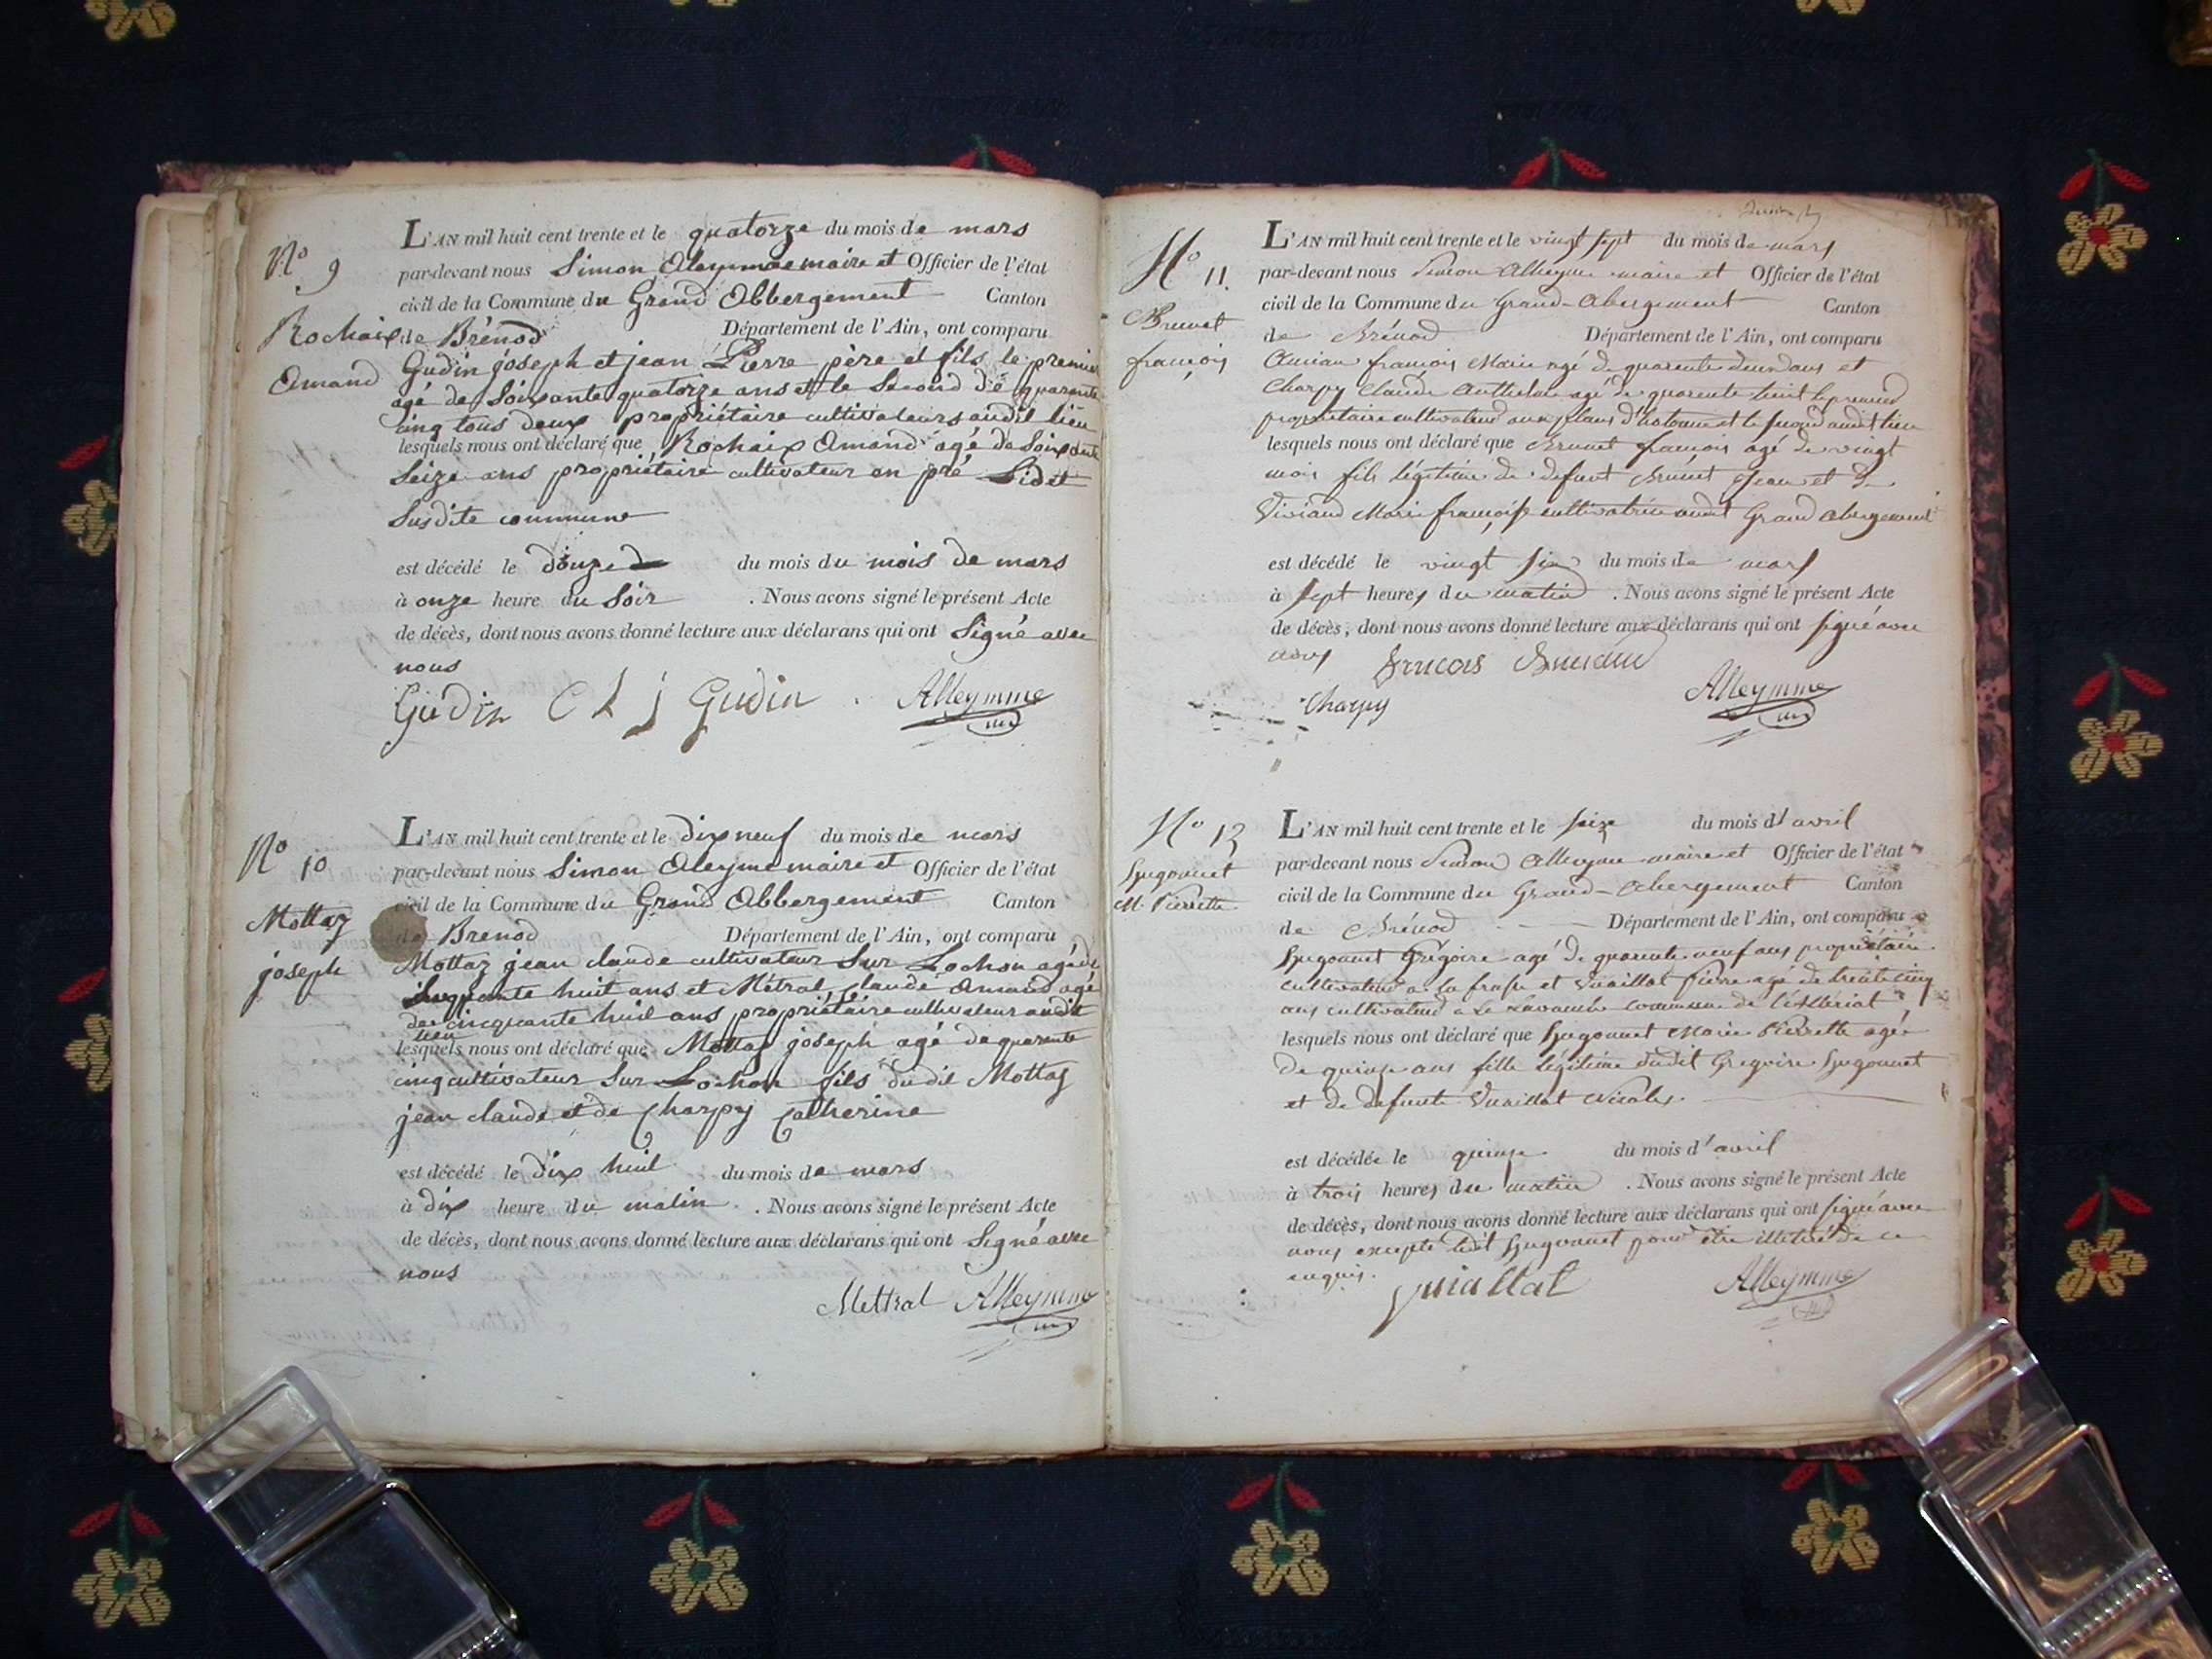 N.o 9
Rochaix
Amand
L'AN mil huit cent trente et le quatorze du mois de mars
par-devant nous Simon Aleymme maire et Officier de l'état
civil de la Commune du Grand Abbergement Canton
de Brénod Département de l'Ain, ont comparu
Gudin joseph et jean Pierre père et fils le premier
agé de Soixante quatorze ans et le Second de quarante
cinq tous deux propriétaire cultivateurs audit lieu
lesquels nous ont déclaré que Rochaix Amand agé de Soixante
Seize ans propriétaire cultivateur en pré
Susdite commune
est décédé le douze du mois du mois de mars
à onze heure du Soir . Nous avons signé le présent Acte
de décès, dont nous avons donné lecture aux déclarans qui ont Signé avec
nous
Gudin C L J Gudin Alleymme
N.o 10
Mottaz
joseph
L'AN mil huit cent trente et le dix neuf du mois de mars
par-devant nous Simon Aleyme maire et Officier de l'état
civil de la Commune du Grand Abbergement Canton
de Brenod Département de l'Ain, ont comparu
Mottaz jean claude cultivateur Sur Lochon agé de
cinquante huit ans et Métral claude Amand agé
de cinquante huit ans propriétaire cultivateur audit
lieu
lesquels nous ont déclaré que Mottaz joseph agé de quarente
cinq cultivateur Sur Lochon fils du dit Mottaz
jean claude et de Charpy Catherine
est décédé le dix huit du mois de mars
à dix heure du matin . Nous avons signé le présent Acte
de décès, dont nous avons donné lecture aux déclarans qui ont Signé avec
nous
Mettral Alleymme
N.o 11.
Brunet
françois
L'AN mil huit cent trente et le vingt sept du mois de mars
par-devant nous Simon Alleyme maire et Officier de l'état
civil de la Commune du Grand-Abergement Canton
de Brénod Département de l'Ain, ont comparu
françois Marie agé de quarente deux ans et
Charpy Claude Anthelme agé de quarente huit le premier
propriétaire cultivateur aux plans d'hotonne et le second audit lieu
lesquels nous ont déclaré que Brunet françois agé de vingt
mois fils légitime de defunt Brunet Jean et de
Viviand Marie françoise cultivatrice audit Grand abergement
est décédé le vingt six du mois de mars
à sept heures du matin . Nous avons signé le présent Acte
de décès, dont nous avons donné lecture aux déclarans qui ont signé avec
nous
Charpy Alleymme
N.o 13
Hugonnet
M. Pierrette
L'AN mil huit cent trente et le seize du mois d'avril
par-devant nous Simon Alleyme maire et Officier de l'état
civil de la Commune du Grand-Abergement Canton
de Brénod Département de l'Ain, ont comparu
Hugonnet Grégoire agé de quarente neuf ans propriétaire
cultivateur a la et Vuaillat Pierre agé de trente cinq
ans cultivateur a commune de
lesquels nous ont déclaré que Hugonnet Marie Pierrette agée
de quinze ans fille légitime dudit Gregoire Hugonnet
et de defunte Vuaillat
est décédée le quinze du mois d'avril
à trois heures du matin . Nous avons signé le présent Acte
de décès, dont nous avons donné lecture aux déclarans qui ont signé avec
nous excepté ledit Hugonnet pour être illétré de ce
enquis.
Vuiallat Alleymme